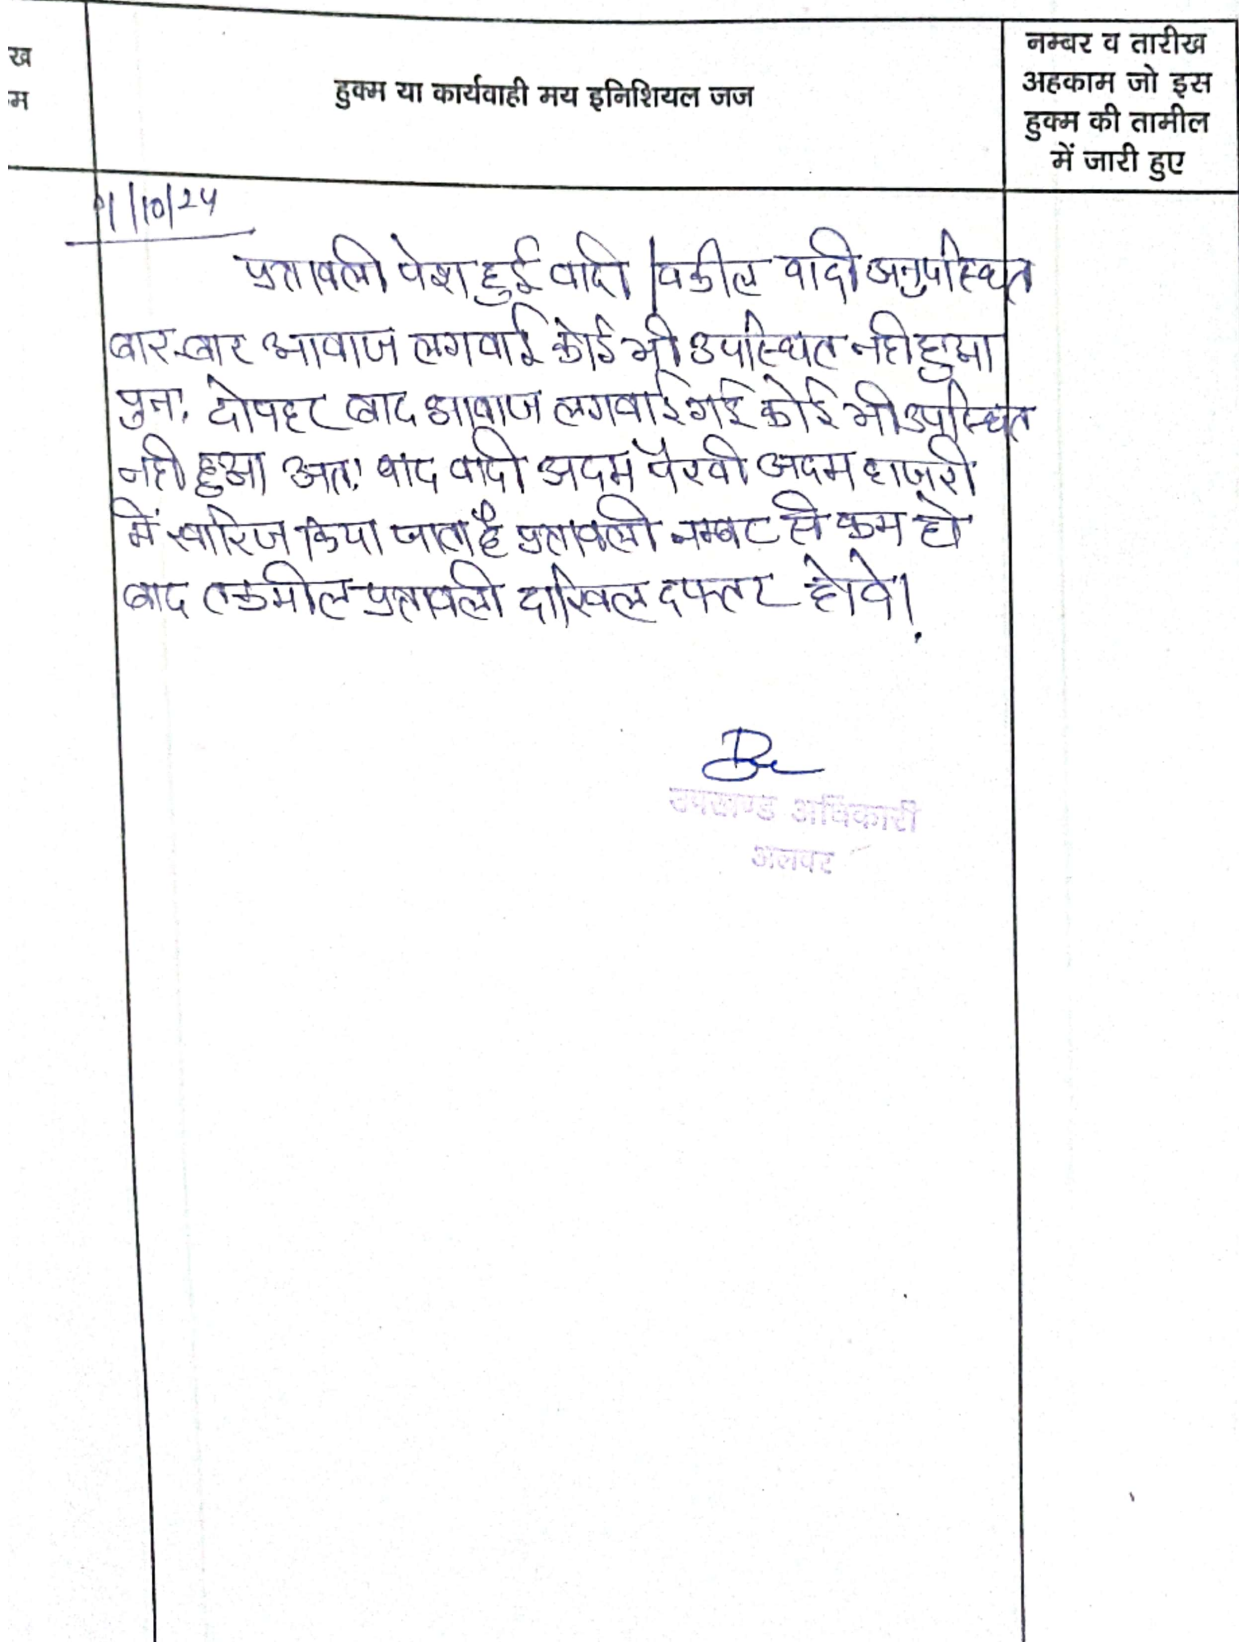 ख
म
हुक्म या कार्यवाही मय इनिशियल जज
नम्बर व तारीख
अहकाम जो इस
हुक्म की तामील
में जारी हुए
1/10/24
पत्रावली पेश हुई वादी / वकील वादी अनुपस्थित
बार-बार आवाज लगवाई कोई भी उपस्थित नही हुआ
पुनः दोपहर बाद आवाज लगवाई गई कोई भी उपस्थित
नही हुआ अतः वाद वादी अदम पैरवी अदम हाजरी
में खारिज किया जाता है पत्रावली नम्बर से कम हो
बाद तकमील पत्रावली दाखिल दफ्तर होवे।
उपखण्ड अधिकारी
अलवर